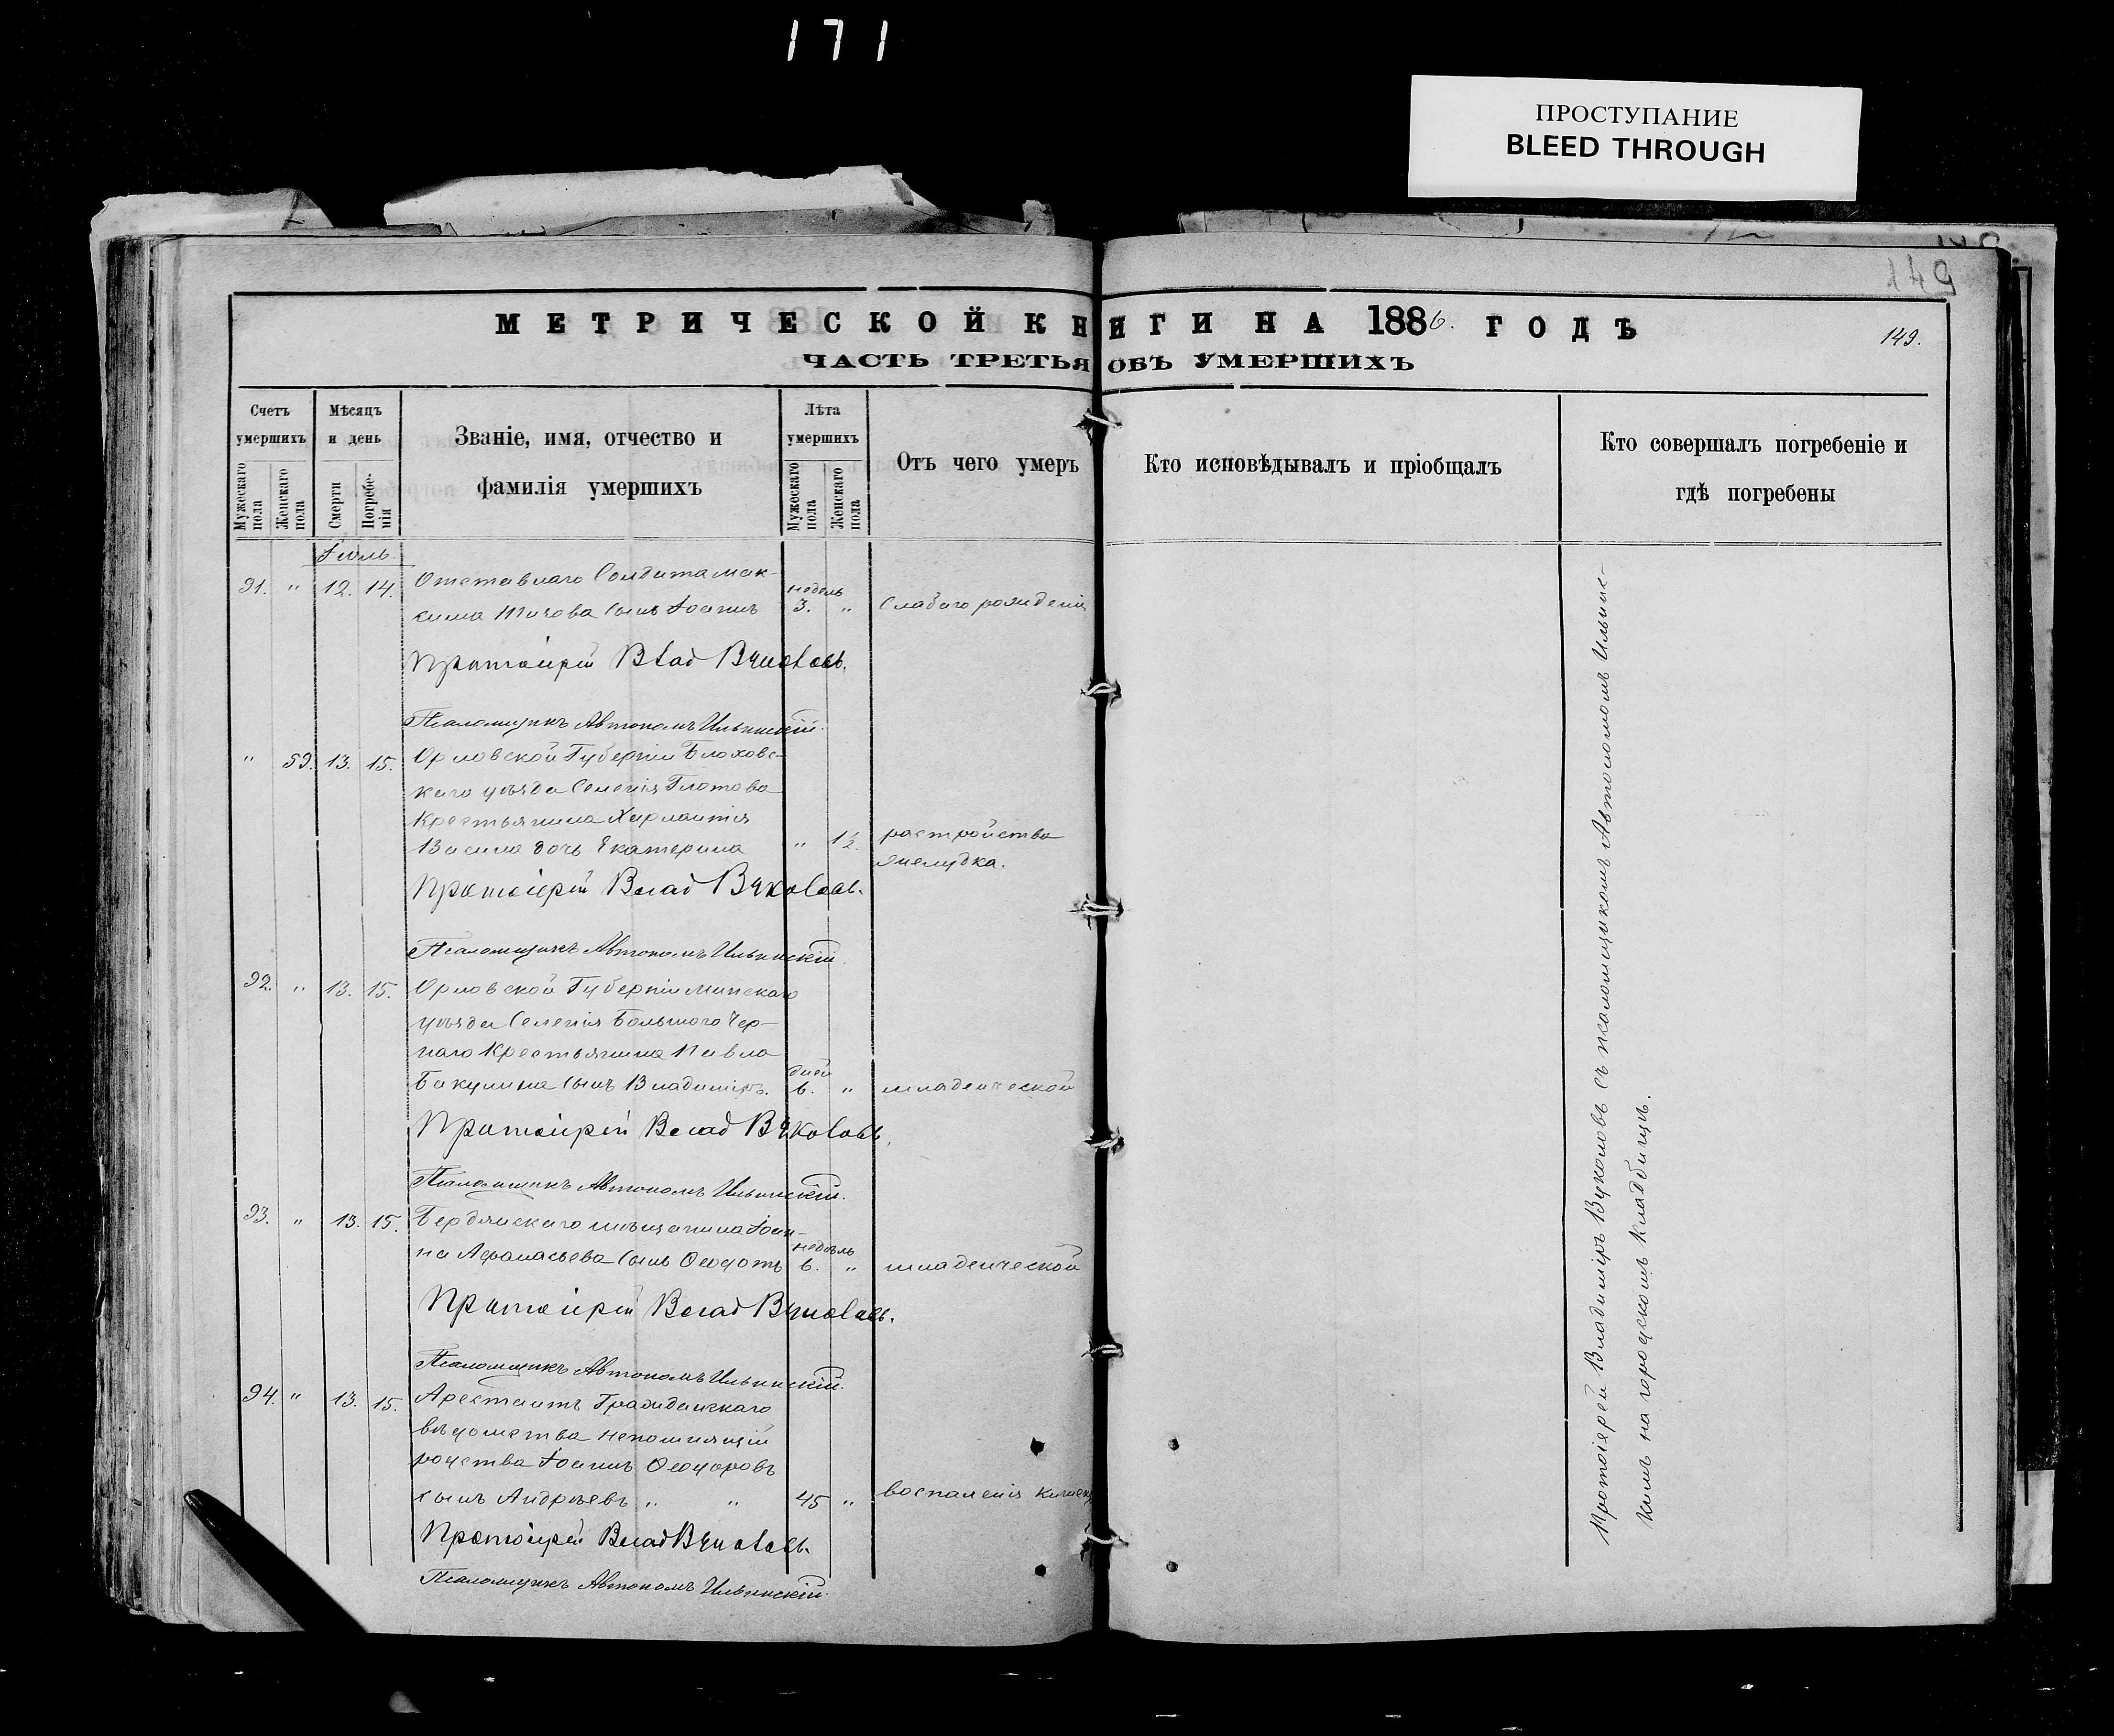 171
ПРОСТУПАНИЕ
BLEED THROUGH
149
МЕТРИЧЕСКОЙ КНИГИ НА 1886. ГОДЪ
149.
ЧАСТЬ ТРЕТЬЯ ОБЪ УМЕРШИХЪ
Счетъ умершихъ
Мужескаго пола
Женскаго пола
Мѣсяцъ и день
Смерти
Погребенія
Званіе, имя, отчество и
фамилія умершихъ
Лѣта умершихъ
Мужескаго пола
Женскаго пола
Отъ чего умеръ
Кто исповѣдывалъ и пріобщалъ
Кто совершалъ погребеніе и
гдѣ погребены
Іюль.
91. " 12. 14. Отставнаго Солдата Мак-
сима Титова сынъ Іоаннъ недѣль 3. " Слабаго рожденія
Протоіерей Влад Вуколовъ.
Псаломщикъ Автономъ Ильинскій.
" 59. 13. 15. Орловской Губерніи Болховс-
каго уѣзда Селенія Глотова
Крестьянина
дочь Екатерина " 1½. растройства
желудка.
Протоіерей Влад Вуколовъ.
Псаломщикъ Автономъ Ильинскій.
92. " 13. 15. Орловской Губерніи Мценскаго
уѣзда Селенія Большого Чер-
наго Крестьянина Павла
Бакулина сынъ Владиміръ. дней 6. " младенческой
Протоіерей Влад Вуколовъ.
Псаломщикъ Автономъ Ильинскій.
93. " 13. 15. Бердянскаго мѣщанина Іоан-
на Афанасьева сынъ Ѳеодотъ недѣль 6. " младенческой
Протоіерей Влад Вуколовъ.
Псаломщикъ Автономъ Ильинскій.
94. " 13. 15. Арестантъ Гражданскаго
вѣдомства непомнящій
родства Іоаннъ Ѳеодоровъ
сынъ Андрѣевъ " " 45 " воспаленія
Протоіерей Влад Вуколовъ.
Псаломщикъ Автономъ Ильинскій.
Протоіерей Владиміръ Вуколовъ съ псаломщикомъ Автономомъ Ильинс-
кимъ на городскомъ Кладбищѣ.